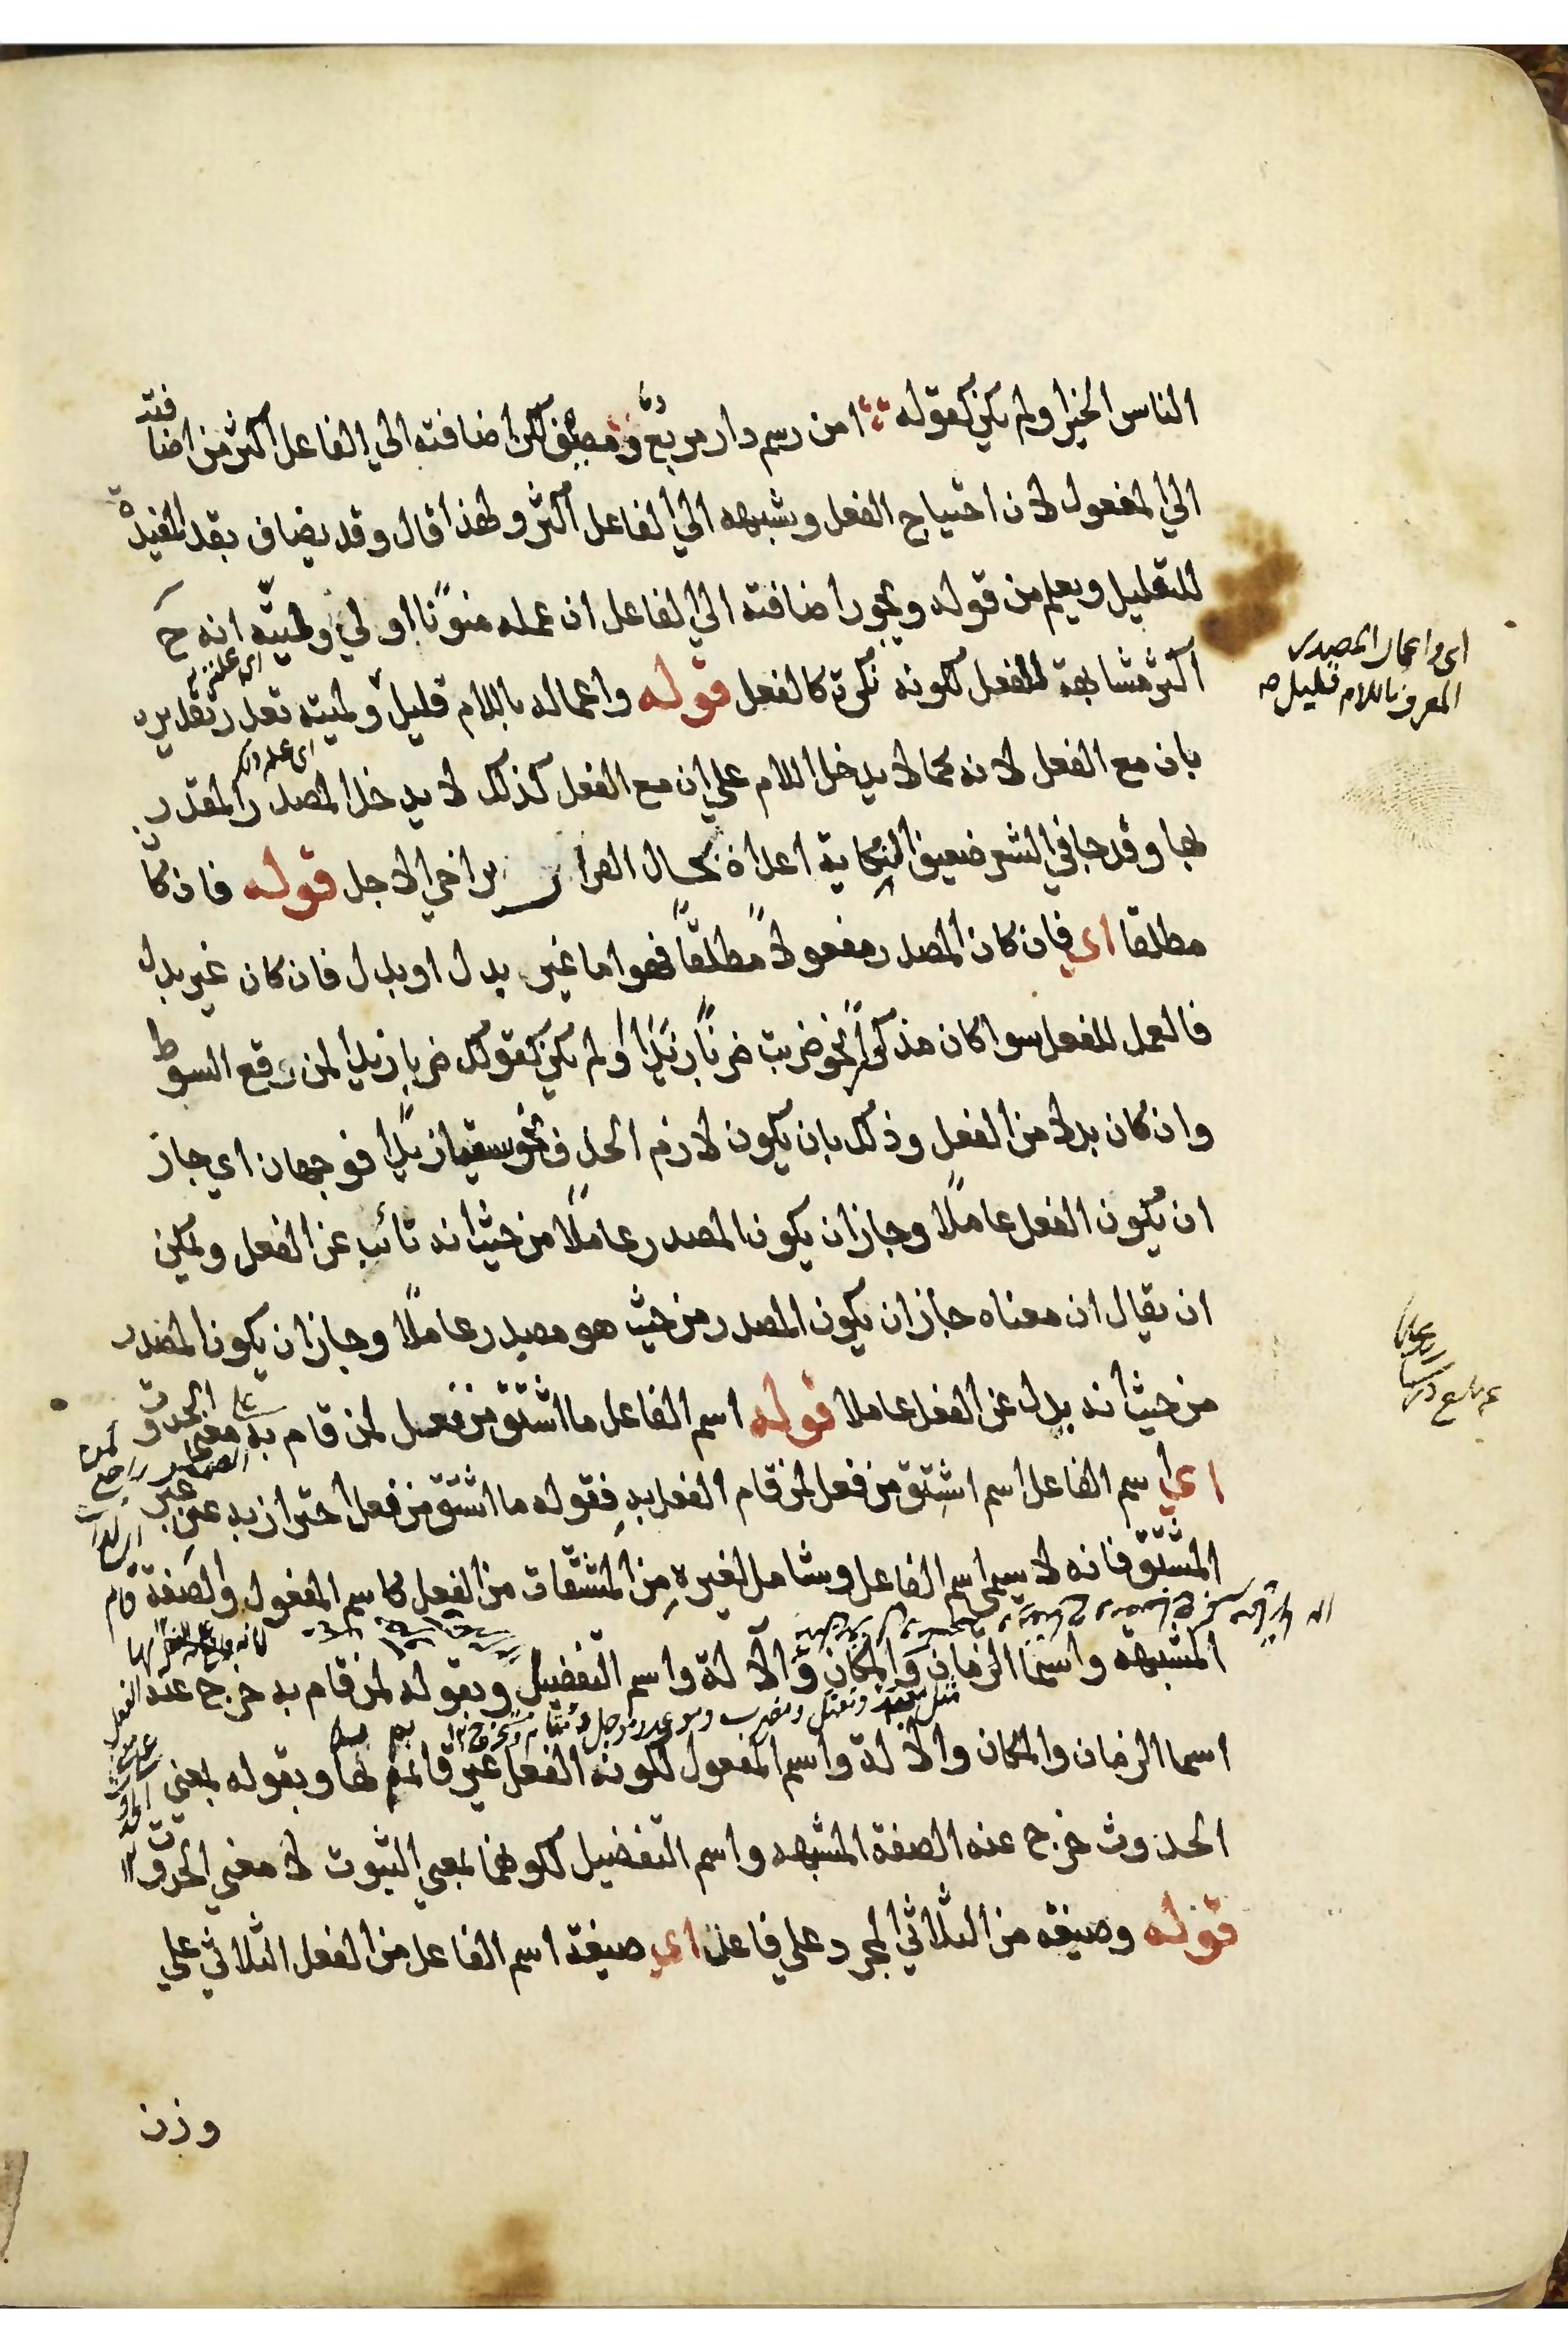 الناس الخير اولم يكن كقوله امن رسم دار مربع ومصيف لكن اضافته الي الفاعل اكثر من اضافته
الي المفعول لان احتياج الفعل وشبهه الي الفاعل اكثر ولهذا قال وقد يضاف بقد المفيدة
للتقليل ويعلم من قوله ويجوز اضافته الي الفاعل ان عمله منونًا اولي ولميته انه ح
اكثر مشابهة للفعل لكونه نكرة كالفعل قوله واعماله باللام قليل ولميته تعذر تقديره
بان مع الفعل لانه كما لا يدخل اللام علي ان مع الفعل كذلك لا يدخل المصدر المقدر
بها وقد جا في الشعر ضعيف النكاية اعداه يخال الفرار يراخي الاجل قوله فان كان
مطلقا اي فان كان المصدر مفعولاً مطلقًا فهو اما غير بدل او بدل فان كان غير بدل
فالعمل للفعل سوا كان مذكورًا نحو ضربت ضربًا زيدًا اولم يكن كقولك ضربا زيدا لمن رفع السوط
وان كان بدلا من الفعل وذلك بان يكون لازم الحذف نحو سقيا زيدًا فوجهان اي جاز
ان يكون الفعل عاملًا وجاز ان يكون المصدر عاملًا من حيث انه نائب عن الفعل ويمكن
ان يقال ان معناه جاز ان يكون المصدر من حيث هو مصدر عاملًا وجاز ان يكون المصدر
من حيث انه بدل عن الفعل عاملا قوله اسم الفاعل ما اشتق من فعل لمن قام به بمعني الحدوث
اي اسم الفاعل اسم اشتق من فعل لمن قام الفعل به فقوله ما اشتق من فعل احتراز به عن غير
المشتق فانه لا يسمي اسم الفاعل وشامل لغيره من المشتقات من الفعل كاسم المفعول والصفة
المشبهه واسما الزمان والمكان والالة واسم التفضيل وبقوله لمن قام به خرج عنه
اسما الزمان والمكان والالة واسم المفعول لكونه الفعل غير قائم بها وبقوله بمعني
الحدوث خرج عنه الصفة المشبهه واسم التفضيل لكونهما بمعني الثبوت لا معني الحدوث
قوله وصيغته من الثلاثي المجرد علي فاعل اي صيغة اسم الفاعل من الفعل الثلاثي علي
وزن
اي واعمال المصدر
المعرف باللام قليل صه